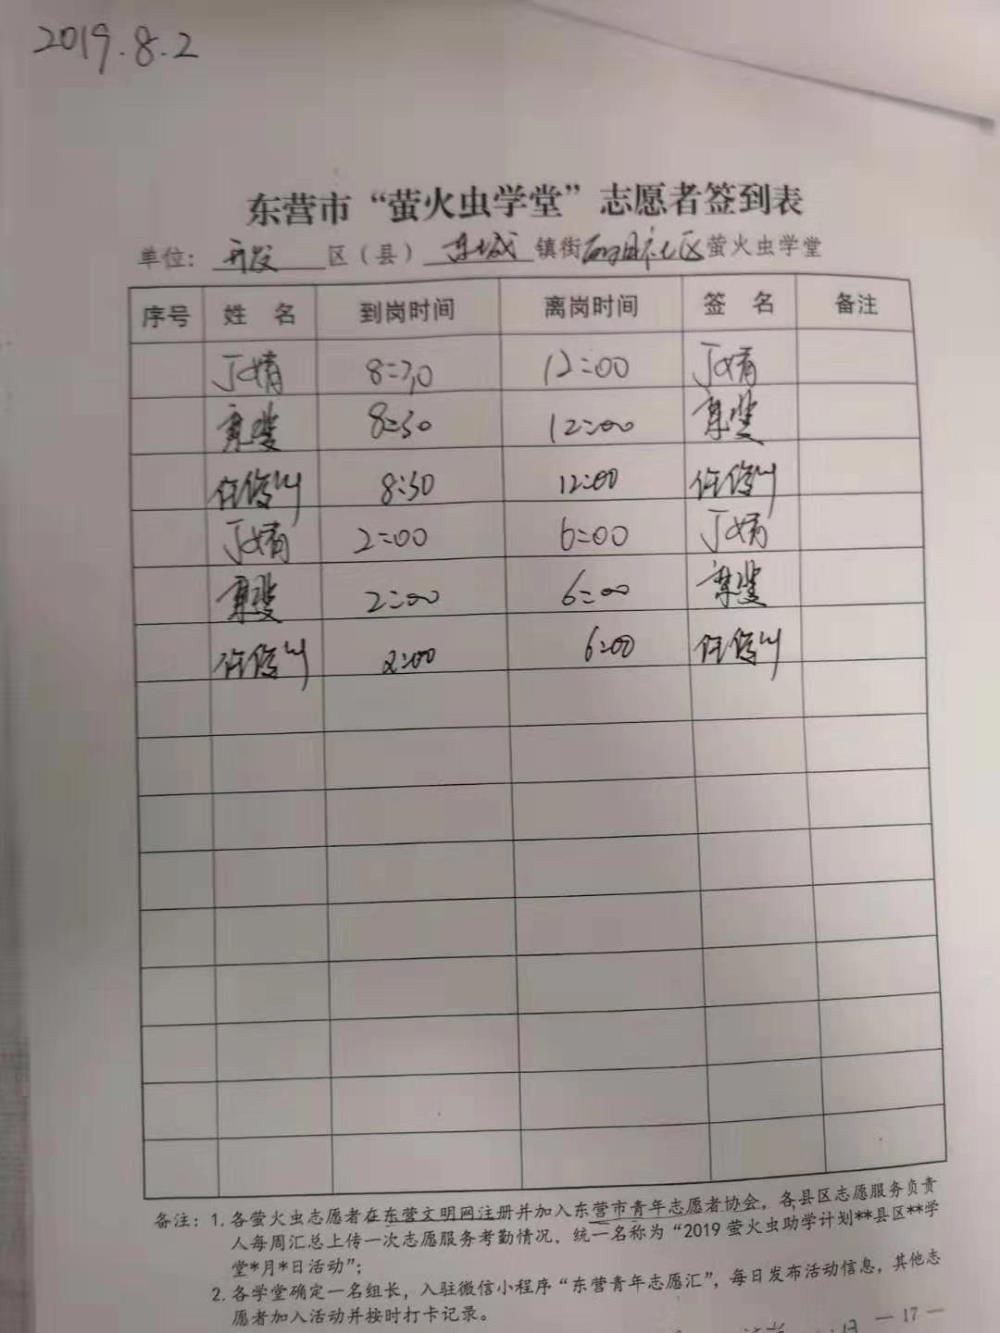 2019.8.2
东营市“萤火虫学堂”志愿者签到表
单位：开发区（县）东城镇街社区萤火虫学堂
序号 姓 名 到岗时间 离岗时间 签 名 备注
丁婧 8:30 12:00 丁婧
8:30 12:00
任俊 8:30 12:00 任俊
丁婧 2:00 6:00 丁婧
2:00 6:00
任俊 2:00 6:00 任俊
备注：1. 各萤火虫志愿者在东营文明网注册并加入东营市青年志愿者协会，各县区志愿服务负责
人每周汇总上传一次志愿服务考勤情况，统一名称为“2019萤火虫助学计划**县区**学
堂*月*日活动”；
2. 各学堂确定一名组长，入驻微信小程序“东营青年志愿汇”，每日发布活动信息，其他志
愿者加入活动并按时打卡记录。
— 17 —